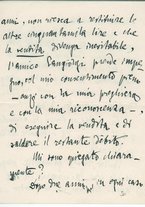 anni, non riesca a restituire le
altre cinquantamila lire e che
la vendita divenga inevitabile,
l'amico Cangiolosi prende impe-
gno, col mio consentimento preven-
con la mia preghiera
e con la mia riconoscenza
di eseguire la vendita e di
saldare il restante debito.
Mi sono spiegato chiara-
mente?
Dopo due anni, in ogni caso